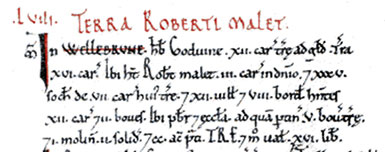 .LVIII. TERRA ROBERTI MALET.
M In WELLEBRUNE. hb Goduine .xii. car t're ad gld. T'ra
xvi. car'. Ibi ht Robt malet .iii. car in d'nio. 7 xxxv.
soch de .vii. car hui' t're. 7 xii. uill 7 viii. bord. h'ntes
xii. car 7 ii. boues. Ibi pbr 7 eccl'a ad qua' pan'. v. bou t're.
7 i. molin' ii. solid'. 7 cc. ac p'ti. T.R.E. 7 m' ual'. xvi. lib.